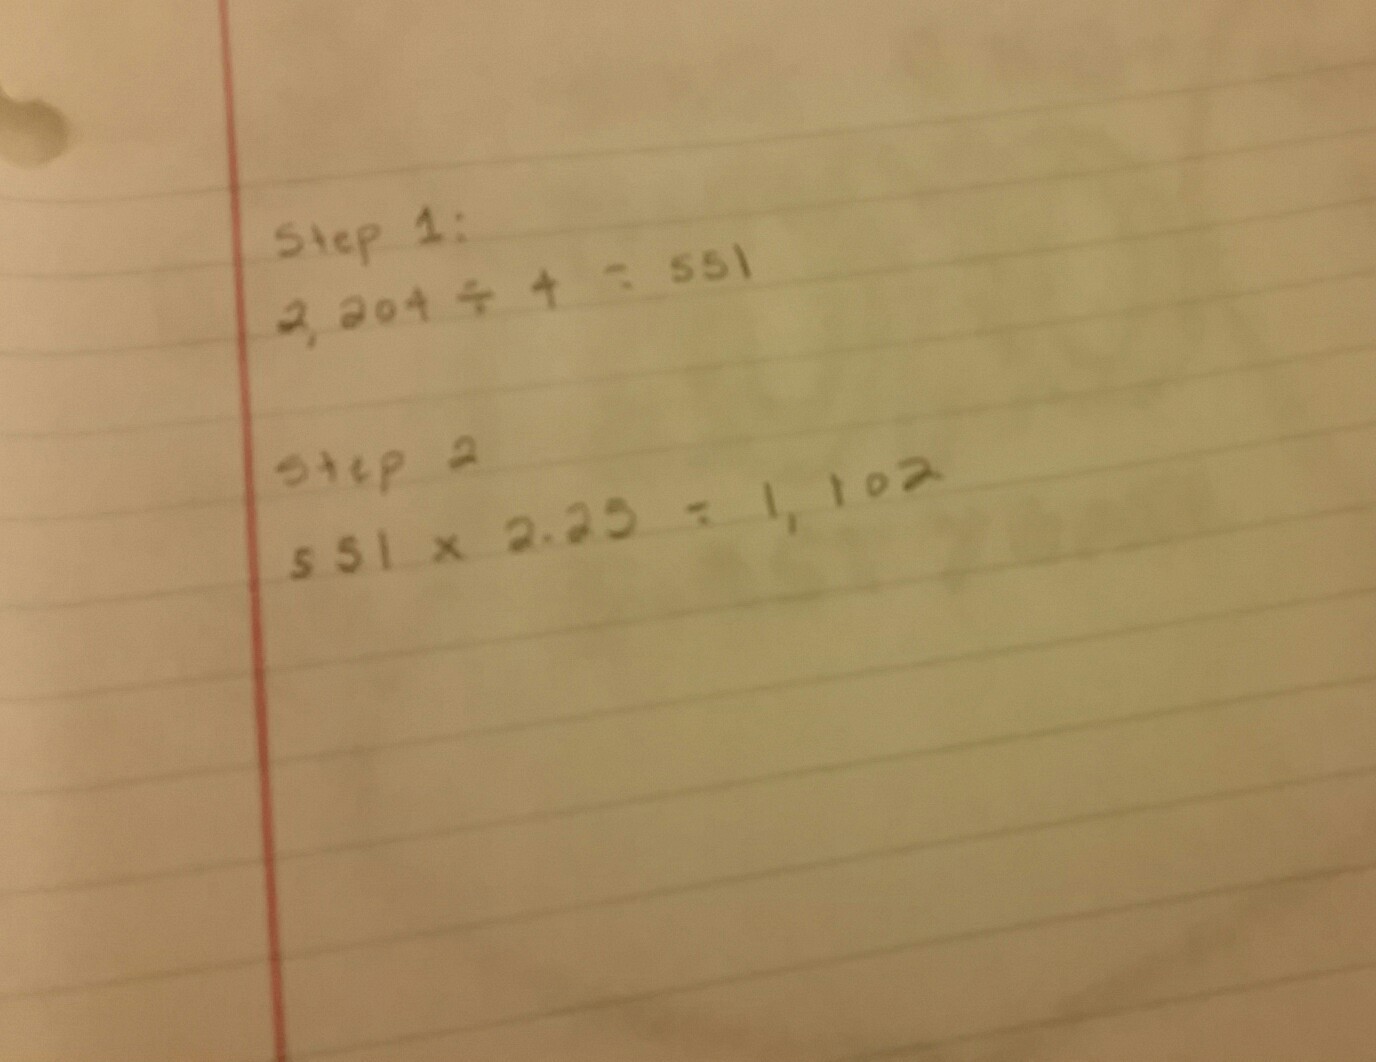 Step 1:
2,204 ÷ 4 = 551
Step 2
551 x 2.25 = 1,102